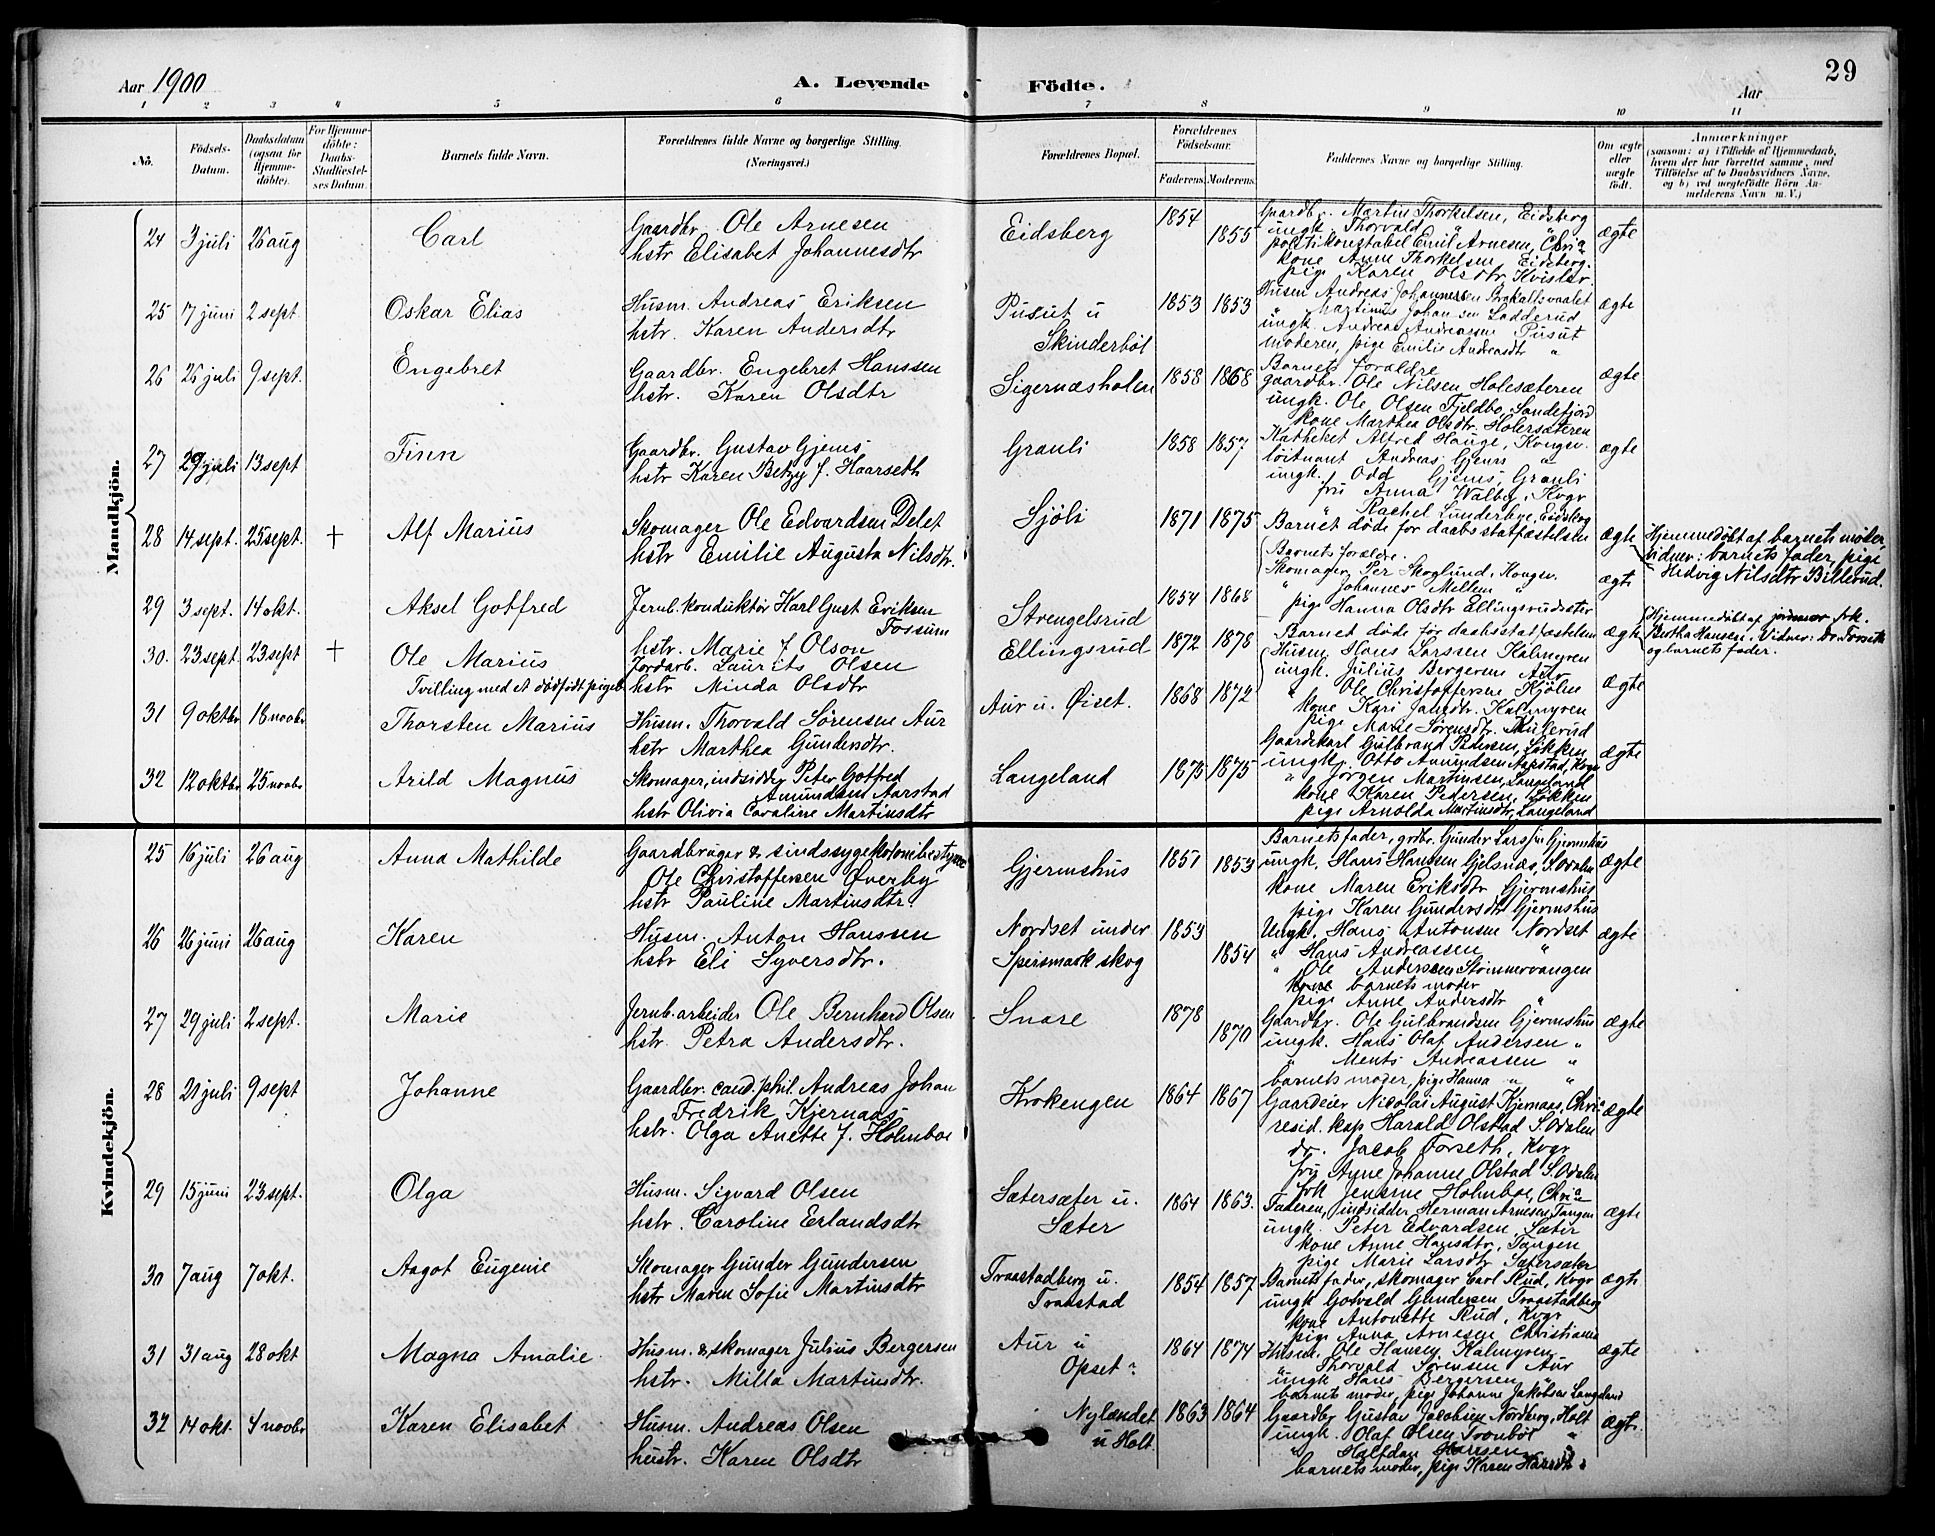 Aar 1900 A. Levende Födte. Aar 29
1 2 3 4 5 6 7 8 9 10 11
No. Födsels-Datum. Daabsdatum (ogsaa for Hjemmedöbte). For Hjemmedöbte: Daabs-Stadfæstelses Datum. Barnets fulde Navn. Forældrenes fulde Navne og borgerlige Stilling. (Næringsvei.) Forældrenes Bopæl. Forældrenes Födselsaar. Faderens. Moderens. Faddernes Navne og borgerlige Stilling. Om ægte eller uægte födt. Anmærkninger (saasom: a) i Tilfælde af Hjemmedaab, hvem der har forrettet samme, med Tilföielse af to Daabsvidners Navne, og b) ved uægtefödte Börn Anmelderens Navn m. V.)
Mandkjön.
24 3 juli 26 aug Carl Gaardbr. Ole Arnesen Eidsberg 1854 1855 Gaardbr. Martin Thorkelsen, Eidsberg ægte
hstr Elisabet Johannesdtr ungk. Thorvald " "
politikonstabel Emil Arnesen, Chria
kone Anne Thorkelsen, Eidsberg.
pige Karen Olsdtr Kvisler
25 17 juni 2 sept. Oskar Elias Husm. Andreas Eriksen Pusut u 1853 1853 Husm Andreas Johannessen Brakalsvaalet ægte
hstr. Karen Andersdtr Skinderböl " Martinus Johansen Ladderud
ungk. Andreas Andreassen Pusut
moderen, pige Emilie Andreasdtr "
26 26 juli 9 sept. Engebret Gaardbr. Engebret Hanssen Sigernæsholen 1858 1868 Barnets foraldre ægte
hstr. Karen Olsdtr gaardbr. Ole Nilsen Holesæteren
ungk. Ole Olsen Fjeldbo, Sandefjord
kone Marthea Olsdtr. Holersæteren
27 29 juli 13 sept Finn Gaardbr. Gustav Gjems Granli 1858 1857 Katheket Alfred Hauge, Kongsv. ægte
hstr Karen Betzy f. Haarseth löitnant Andreas Gjems "
ungk. Odd Gjems, Granli
fru Anna Walby, Kvgr
" Rachel Lunderbye, Eidskog
28 14 sept. 25 sept. + Alf Marius Skomager Ole Edvardsen Delet Sjöli 1871 1875 Barnet döde for daabsstatfæstelsen ægte Hjemmedöbt af barnets moder,
hstr Emilie Augusta Nilsdtr. vidner: barnets fader, pige
Hedvig Nilsdtr Billerud.
29 3 sept. 14 okt. Aksel Gotfred Jernb. konduktör Karl Gust Eriksen Fossum Strengelsrud 1854 1868 Barnets forældre. ægte
hstr. Marie f Olson Skomager Per Skoglund, Kongsv.
" Johannes Mellem "
pige Hanna Olsdtr Ellingsrudsæter
30. 23 sept. 23 sept + Ole Marius Jordarb. Laurits Olsen Ellingsrud 1872 1878 Barnet döde for daabsstatfæstelsen ægte Hjemmedöbt af jordmor frk.
Tvilling med et dödfödt pigeb. hstr Minda Olsdtr Bertha Hansen. Vidner: Dr Forseth
og barnets fader.
31 9 oktbr 18 novbr Thorsten Marius Husm. Thorvald Sörensen Aur Aur u. Öiset. 1868 1872 Husm Hans Larssen Kalmyren ægte
hstr Marthea Gundersdtr. ungk. Julius Bergersen Aur
" Ole Christoffersen Kjölen
kone Kari Jansdtr. Kalmyren
pige Marie Sörensdtr.
32 12 oktbr 25 novbr Arild Magnus Skomager, indsidder Peter Gotfred Amundsen Aarstad Langeland 1875 1875 Gaardskarl Gulbrand Pedersen, Lökken ægte
hstr Olivia Caroline Martinsdtr ungk. Otto Amundsen Aarstad, Kvgr
" Jörgen Martinsen, Langeland
kone Karen Pedersen, Lökken
pige Arnolda Martinsdtr, Langeland
Kvindekjön.
25 16 juli 26 aug Anna Mathilde Gaardbruger & sindssygekolonibestyrer Gjermshus 1851 1853 Barnets fader, grdbr. Gunder Larssen Gjermshus ægte
Ole Christoffersen Overby ungk. Hans Hanssen Gjelsnæs, S. Odalen
hstr Pauline Martinsdtr. kone Maren Eriksdtr Gjermshus
pige Karen Gundersdtr Gjermshus
26 26 juni 26 aug Karen Husm. Anton Hanssen Nordset under 1853 1854 Ungk. Hans Antonsen Nordset ægte
hstr Eli Syversdtr. Speismark skog " Hans Andreassen "
" Ole Anderssen Stömmervangen
kone barnets moder
pige Anne Andersdtr "
27 29 juli 2 sept. Marie Jernb. arbeider Ole Bernhard Olsen Snare 1878 1870 Gaardbr. Ole Gulbrandsen Gjermshus ægte
hstr. Petra Andersdtr. ungk. Hans Olaf Andersen "
" Ments Andreassen "
barnets moder, pige Hanna " "
28 21 juli 9 sept Johanne Gaardbr. cand. phil. Andreas Johan Krokengen 1864 1867 Gaardeier Nicolai August Kjernaas, Chria ægte
Fredrik Kjernaas resid. kap Harald Olstad S. Odalen
hstr. Olga Anette f. Holmboe dr. Jacob Forseth, Kvgr
fru Anne Johanne Olstad S. Odalen
frk Jensine Holmboe, Chria
29 15 juni 23 sept. Olga Husm. Sigvard Olsen Sætersæter u. 1864 1863. Faderen, indsidder Herman Arnesen Tangen ægte
hstr. Caroline Erlandsdtr Sæter ungk. Peter Edvardsen, Sæter
kone Anne Hansdtr, Tangen
pige Marie Larsdtr Sætersæter
30 7 aug 7 okt. Aagot Eugenie Skomager Gunder Gundersen Traastadberg u. 1854 1857 Barnets fader, skomager Carl Rud, Kvgr ægte
hstr Maren Sofie Martinsdtr Traastad ungk Gotvald Gundersen Traastadberg
kone Antonette Rud, Kvgr
pige Anna Arnesen, Christiania
31 31 aug 28 okt Magna Amalie Husm. & skomager Julius Bergersen Aur u 1864 1874 Husm. Ole Hansen Kalmyren ægte
hstr. Milla Martinsdtr. Opset " Thorvald Sörensen Aur
ungk Hans Bergersen "
barnets moder, pige Johanne Jakobsen Langeland
32 14 okt. 4 novbr Karen Elisabet Husm. Andreas Olsen Nylændet 1863 1864 Gaardbr Gustav Jacobsen Nordberg, Holt ægte.
hustr. Karen Olsdtr u Holt ungk. Olaf Olsen Trönböl "
" Halfdan Hansen "
barnets moder, pige Karen Hansdtr "